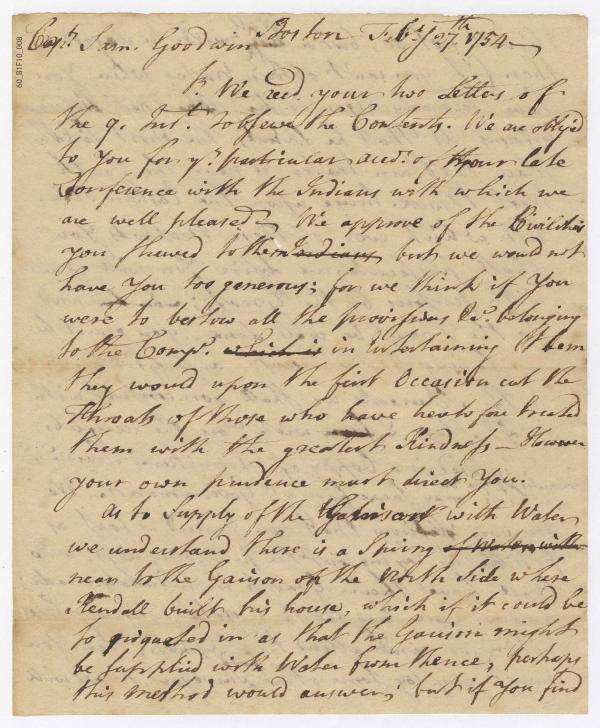 60_B1F10_008
Capt. Sam. Goodwin Boston Feby. 27th 1754
Sr. We recd. your two Letters of
the 9. Inst. & observe the Contents. We are oblig'd
to you for yr. particular acct. of your late
Conference with the Indians with which we
are well pleased. We approve of the Civilities
you shewed to them Indians but we would not
have You too generous; for we think if You
were to bestow all the provisions &c. belonging
to the Compy. which is in Entertaining them
they would upon the first Occasion cut the
Throats of those who have heretofore treated
them with the greatest Kindness — However
your own prudence must direct You.
As to Supply of the Garison with Water
we understand there is a Spring of Water with
near to the Garison on the North Side where
Kendall built his house, which if it could be
so piqueted in as that the Garison might
be supplied with Water from thence, perhaps
this method would answer; but if You find